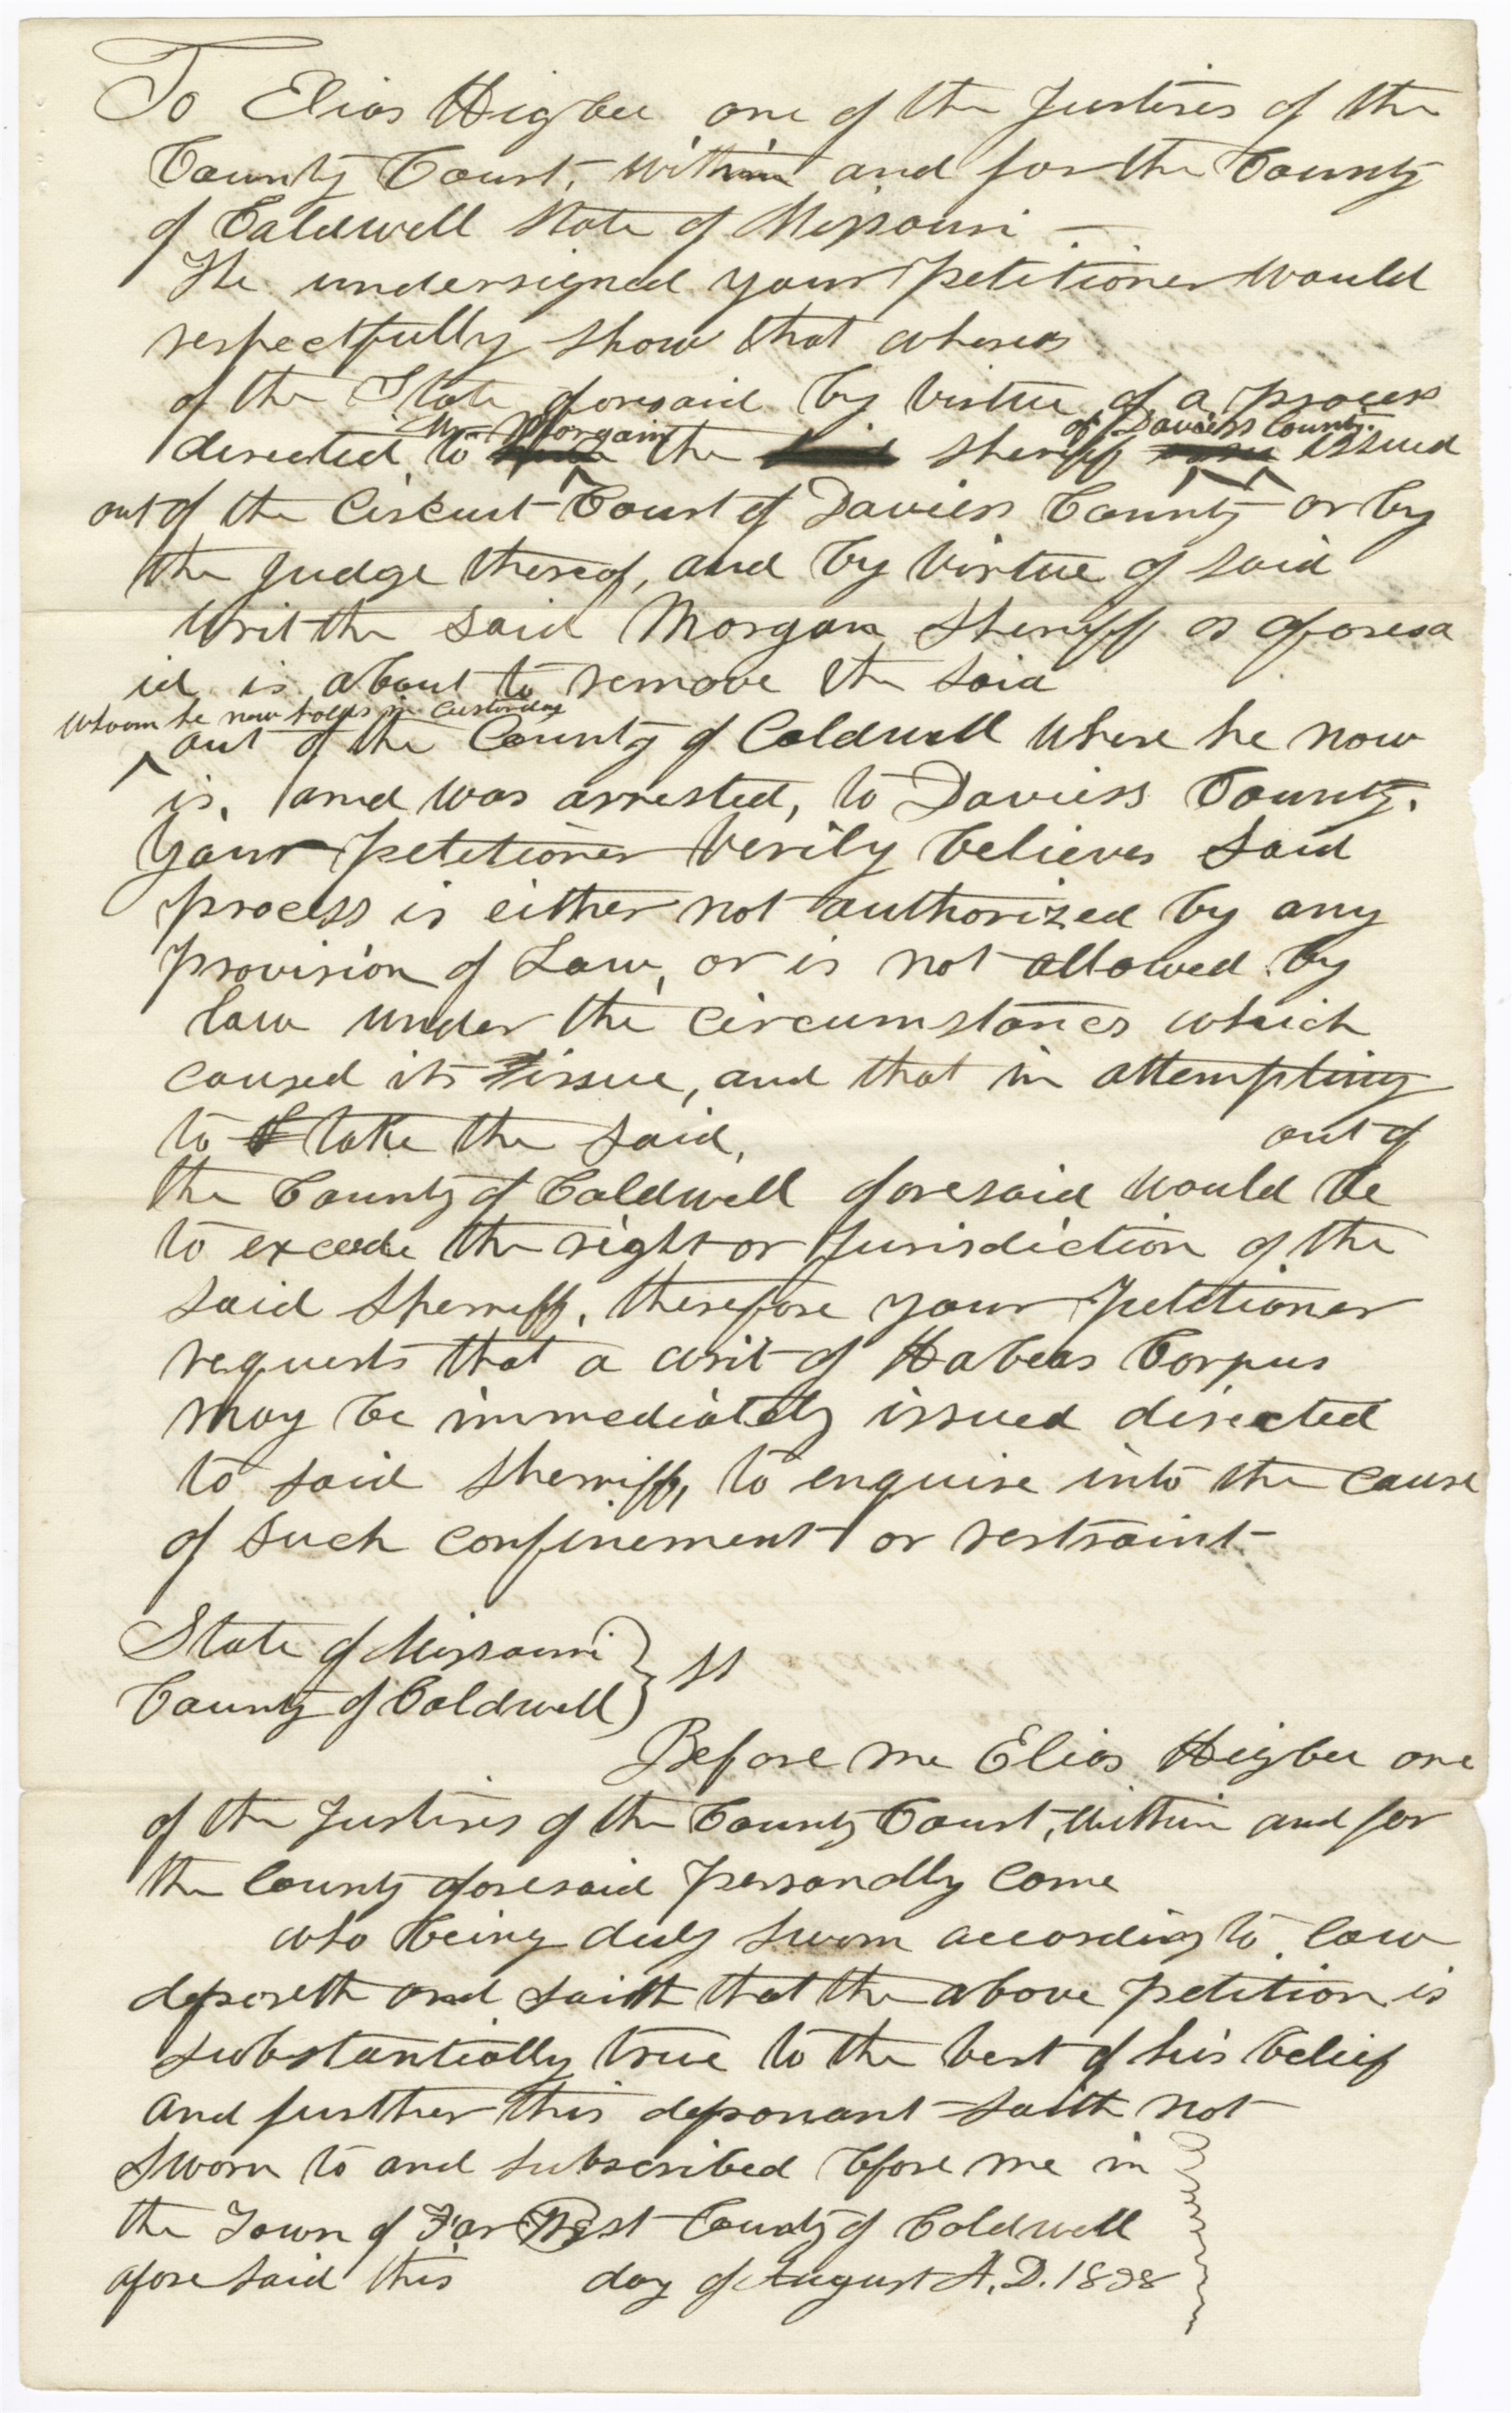 To Elias Higbee one of the Justices of the
County Court, within and for the County
of Caldwell State of Missouri —
The undersigned your petitioner would
respectfully show that whereas
of the State aforesaid by virtue of a process
Wm Morgan of Daviess County.
directed to the sheriff issued
out of the Circuit Court of Daviess County or by
the judge thereof, and by virtue of said
writ the said Morgan Sheriff as aforesa
id is about to remove the said
whom he now holds in custorday
out of the County of Caldwell where he now
is, and was arrested, to Daviess County.
Your petitioner verily believes said
process is either not authorized by any
provision of Law, or is not allowed by
law under the circumstances which
caused its issue, and that in attempting
to take the said, out of
the County of Caldwell aforesaid would be
to excede the right or jurisdiction of the
said Sherriff, therefore your Petitioner
requests that a writ of Habeas Corpus
may be immediately issued directed
to said Sherriff, to enquire into the cause
of such confinement or restraint
State of Missouri } SS
County of Caldwell
Before me Elias Higbee one
of the Justices of the County Court, within and for
the County aforesaid personally come
who being duly sworn according to law
deposeth and saith that the above petition is
substantially true to the best of his belief
and further this deponant saith not
Sworn to and subscribed before me in
the Town of Far West County of Caldwell
aforesaid this day of August A.D. 1838